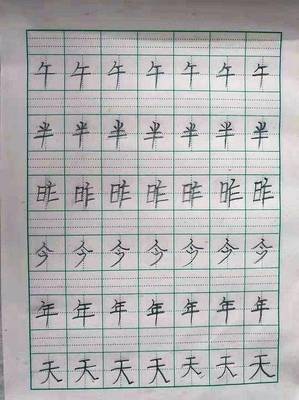 午午午午午午午
半半半半半半半
昨昨昨昨昨昨昨
今今今今今今今
年年年年年年年
天天天天天天天